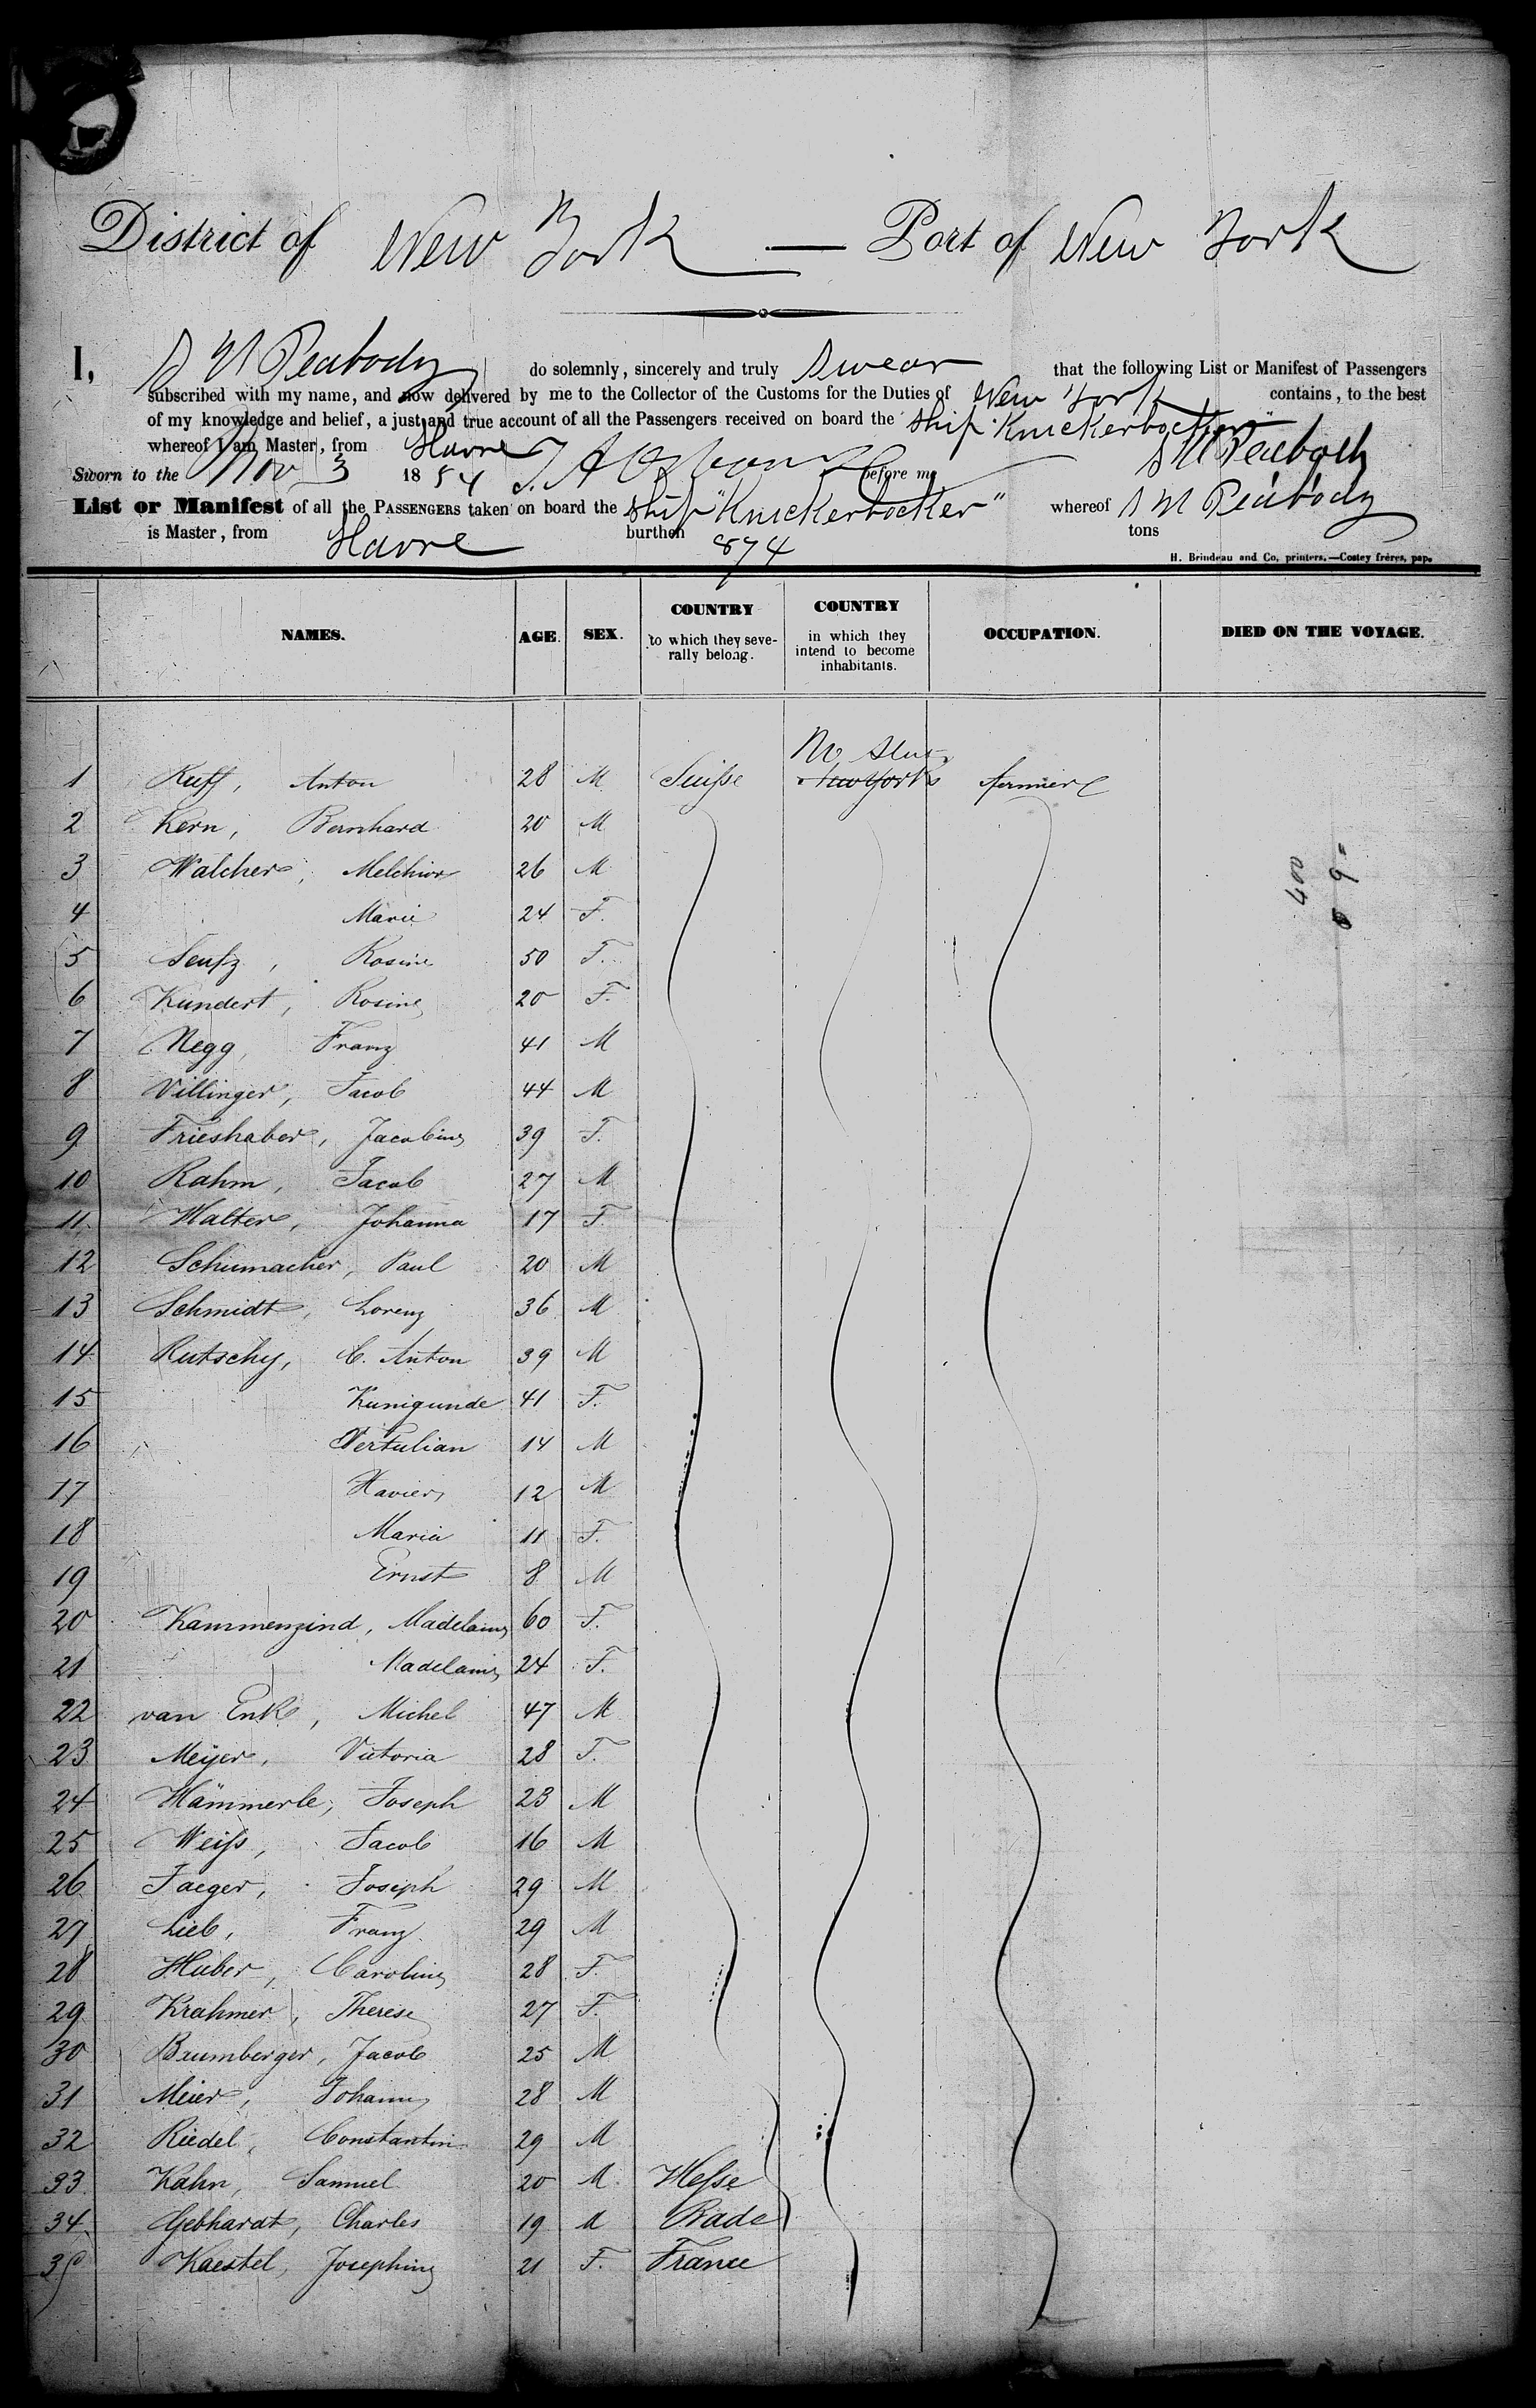 District of New York — Port of New York
I, S M Peabody do solemnly, sincerely and truly swear that the following List or Manifest of Passengers
subscribed with my name, and now delivered by me to the Collector of the Customs for the Duties of New York contains, to the best
of my knowledge and belief, a just and true account of all the Passengers received on board the ship "Knickerbocker"
whereof I am Master, from Havre S M Peabody
Sworn to the Nov 3 1854 before me
List or Manifest of all the PASSENGERS taken on board the ship "Knickerbocker" whereof S M Peabody
is Master, from Havre burthen 874 tons
H. Brindeau and Co, printers.—Costey frères, pap.
NAMES. AGE. SEX. COUNTRY to which they severally belong. COUNTRY in which they intend to become inhabitants. OCCUPATION. DIED ON THE VOYAGE.
1 Ruff, Anton 28 M Suisse New York farmer
2 Kern, Bernhard 20 M
3 Walcher, Melchior 26 M
4 Marie 24 F.
5 Rosine 50 F.
6 Kundert, Rosine 20 F.
7 Negg, Franz 41 M
8 Villinger, Jacob 44 M
9 Frieshaber, Jacobine 39 F.
10 Rahm, Jacob 27 M
11 Walter, Johanna 17 F.
12 Schumacher, Paul 20 M
13 Schmidt, Lorenz 36 M
14 Rutschy, C. Anton 39 M
15 Kunigunde 41 F.
16 Tertulian 14 M
17 Xavier 12 M
18 Maria 11 F.
19 Ernst 8 M
20 Kammenzind, Madelaine 60 F.
21 Madelaine 24 F.
22 van Enk, Michel 47 M
23 Meyer, Victoria 28 F.
24 Hämmerle, Joseph 23 M
25 Weiss, Jacob 16 M
26 Jaeger, Joseph 29 M
27 Lieb, Franz 29 M
28 Huber, Caroline 28 F.
29 Krahmer, Therese 27 F.
30 Baumberger, Jacob 25 M
31 Meier, Johann 28 M
32 Riedel, Constantin 29 M
33 Kahn, Samuel 20 M Hesse
34 Gebhardt, Charles 19 M Bade
35 Kaestel, Josephine 21 F. France
400